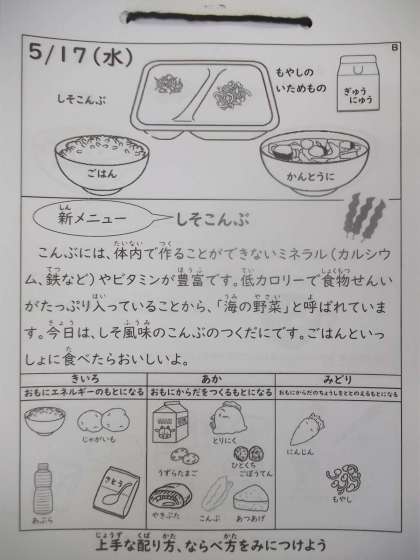 5/17(水)
B
しそこんぶ
もやしの
いためもの
ぎゅう
にゅう
ごはん
かんとうに
新メニュー
しそこんぶ
こんぶには、体内で作ることができないミネラル(カルシウ
ム、鉄など)やビタミンが豊富です。低カロリーで食物せんい
がたっぷり入っていることから、「海の野菜」と呼ばれていま
す。今日は、しそ風味のこんぶのつくだにです。ごはんといっ
しょに食べたらおいしいよ。
きいろ
あか
みどり
おもにエネルギーのもとになる
おもにからだをつくるもとになる
おもにからだのちょうしをととのえるもとになる
じゃがいも
あぶら
さとう
とりにく
うずらたまご
ひとくち
ごぼうてん
やきぶた
こんぶ
あつあげ
にんじん
もやし
上手な配り方、ならべ方をみにつけよう